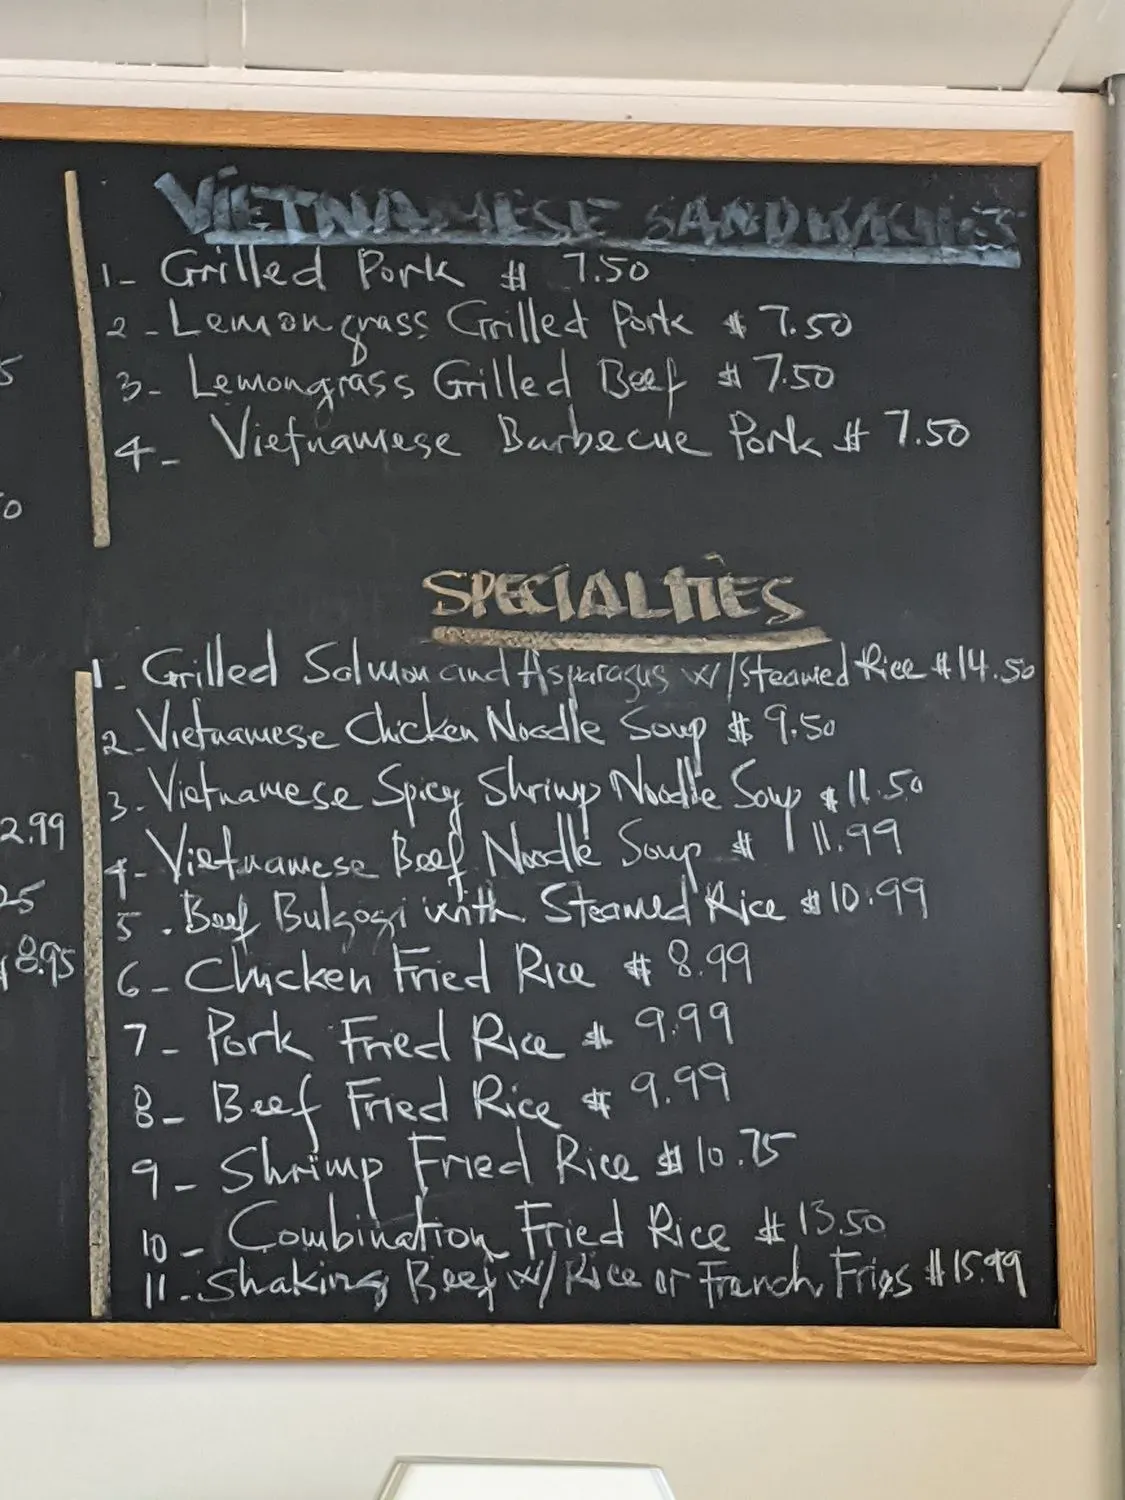 VIETNAMESE SANDWICHES
1- Grilled Pork $ 7.50
2- Lemongrass Grilled Pork $ 7.50
3- Lemongrass Grilled Beef $ 7.50
4- Vietnamese Barbecue Pork $ 7.50
SPECIALITIES
1- Grilled Salmon and Asparagus w/Steamed Rice $14.50
2- Vietnamese Chicken Noodle Soup $ 9.50
3- Vietnamese Spicy Shrimp Noodle Soup $11.50
4- Vietnamese Beef Noodle Soup $ 11.99
5. Beef Bulgogi with Steamed Rice $10.99
6- Chicken Fried Rice $ 8.99
7- Pork Fried Rice $ 9.99
8- Beef Fried Rice $ 9.99
9- Shrimp Fried Rice $10.75
10- Combination Fried Rice $13.50
11-Shaking Beef w/Rice or French Fries $15.99
2.99
8.95